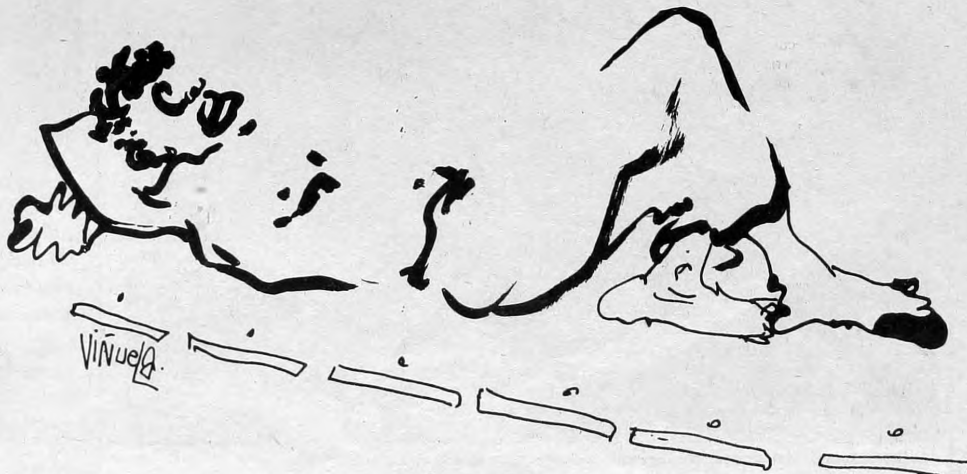 VIÑUELA.